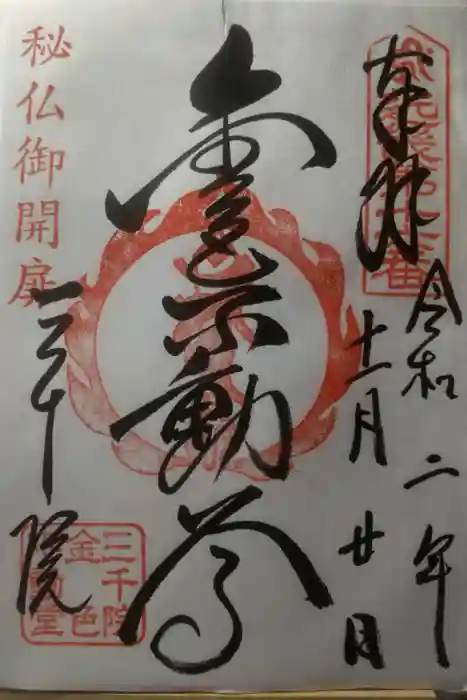 奉拝
令和二年
十一月廿日
金色不動尊
秘仏御開扉
三千院
三千院
金色
動堂